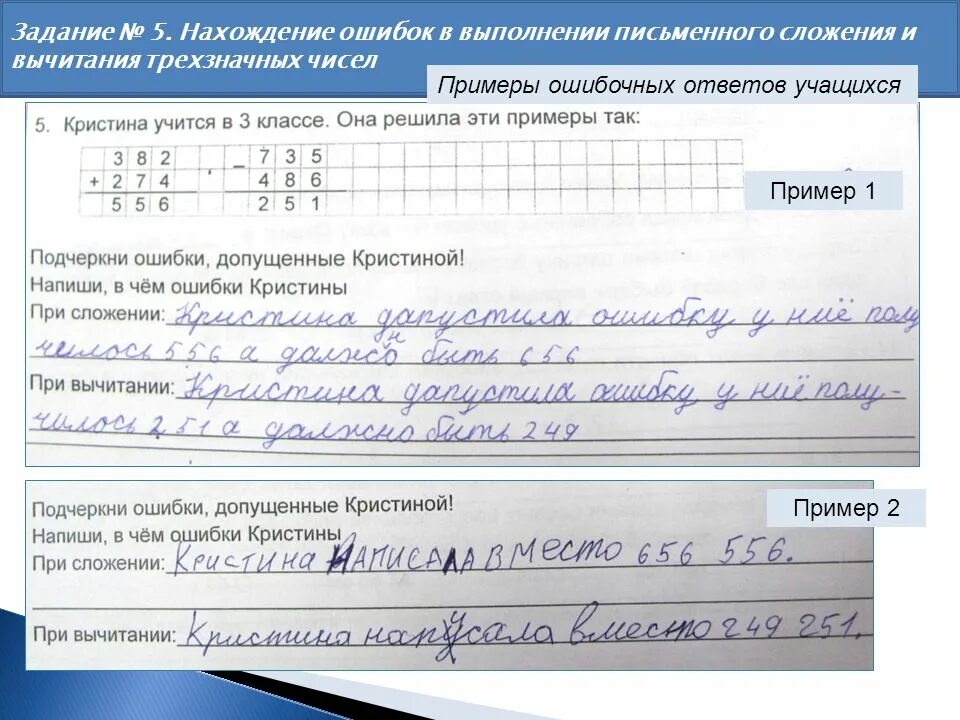 Задание № 5. Нахождение ошибок в выполнении письменного сложения и
вычитания трехзначных чисел
Примеры ошибочных ответов учащихся
5. Кристина учится в 3 классе. Она решила эти примеры так:
3 8 2 − 7 3 5
+ 2 7 4 4 8 6
5 5 6 2 5 1
Пример 1
Подчеркни ошибки, допущенные Кристиной!
Напиши, в чём ошибки Кристины
При сложении: Кристина дапустила ошибку у ниё полу
чилось 556 а должно быть 656
При вычитании: Кристина дапустила ошибку у ниё полу-
чилось 251 а должно быть 249
Пример 2
Подчеркни ошибки, допущенные Кристиной!
Напиши, в чём ошибки Кристины
При сложении: Кристина написала вместо 656 556.
При вычитании: Кристина написала вместо 249 251.